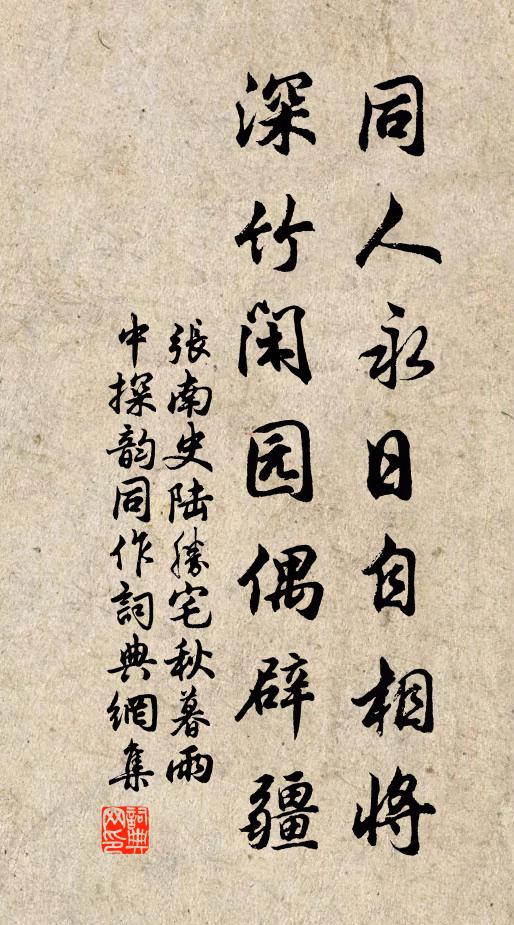 同人永日自相将
深竹闲园偶辟疆
張南史陆勝宅秋暮雨
中探韵同作詞典網集
詞典網印